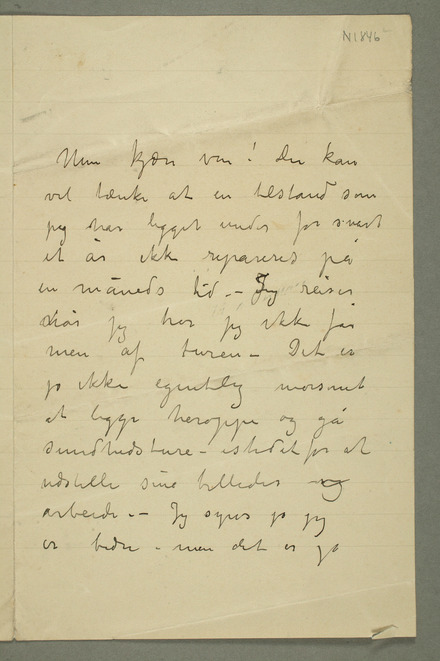 N1846
Min kjære ven! Du kan
vel tænke at en tilstand som
jeg har ligget under for snart
et år ikke repareres på
en måneds tid. – Jeg reiser
når jeg tror jeg ikke får
men af turen – Det er
jo ikke egentlig morsomt
at ligge heroppe og gå
sundhedsture – istedetfor at
udstille sine billeder og
arbeide. – Jeg synes jo jeg
er bedre – men det er jo